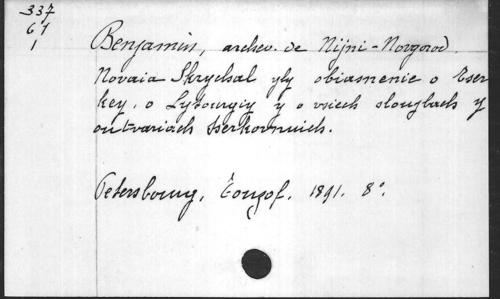 337
61
1
Benjamin, archev. de Nijni-Novgorod.
Novaia Skrychal yly obiasnenie o tser
key, o Lytourgiy y o vsiech slougbach y
outvariach tserkovnuich.
Petersbourg, 1891. 8°.